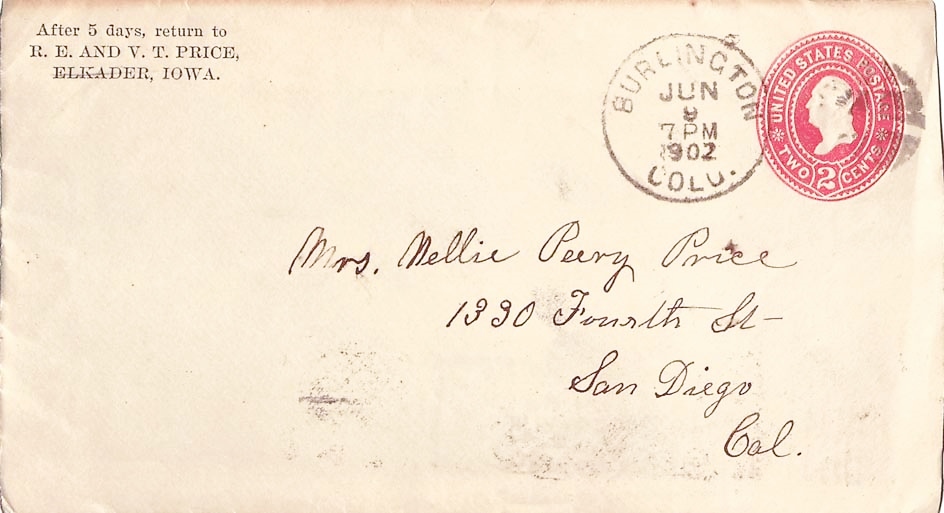 After 5 days, return to
R. E. AND V. T. PRICE,
ELKADER, IOWA.
BURLINGTON
JUN
9
7 PM
1902
COLO.
UNITED STATES POSTAGE
TWO 2 CENTS
Mrs. Nellie Peery Price
1330 Fourth St
San Diego
Cal.